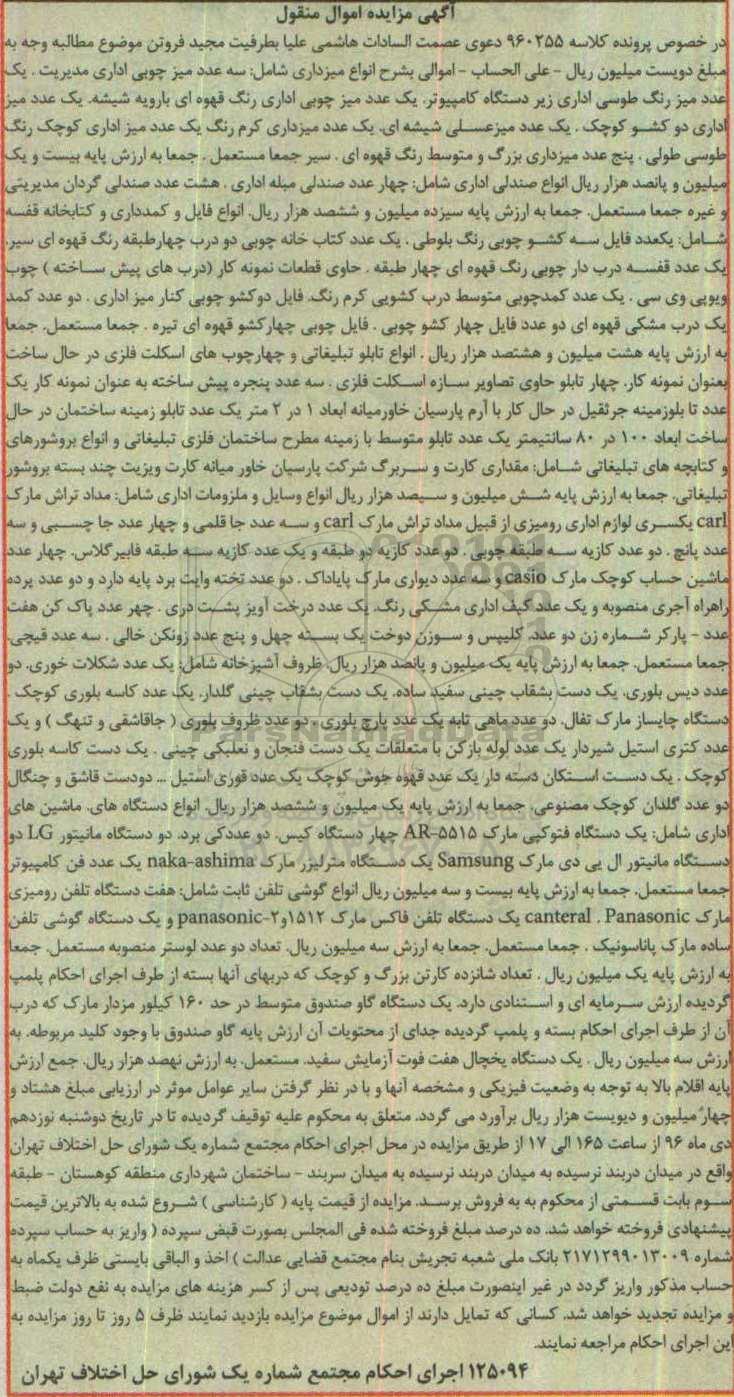 آگهی مزایده اموال منقول
در خصوص پرونده کلاسه ۹۶۰۲۵۵ دعوی عصمت السادات هاشمی علیا بطرفیت مجید فروتن موضوع مطالبه وجه به
مبلغ دویست میلیون ریال - علی الحساب - اموالی بشرح انواع میزداری شامل: سه عدد میز چوبی اداری مدیریت . یک
عدد میز رنگ طوسی اداری زیر دستگاه کامپیوتر. یک عدد میز چوبی اداری رنگ قهوه ای بارویه شیشه. یک عدد میز
اداری دو کشو کوچک . یک عدد میزعسلی شیشه ای. یک عدد میزداری کرم رنگ یک عدد میز اداری کوچک رنگ
طوسی طولی . پنج عدد میزداری بزرگ و متوسط رنگ قهوه ای . سیر جمعا مستعمل . جمعا به ارزش پایه بیست و یک
میلیون و پانصد هزار ریال انواع صندلی اداری شامل: چهار عدد صندلی مبله اداری . هشت عدد صندلی گردان مدیریتی
و غیره جمعا مستعمل. جمعا به ارزش پایه سیزده میلیون و ششصد هزار ریال. انواع فایل و کمدداری و کتابخانه قفسه
شامل: یکعدد فایل سه کشو چوبی رنگ بلوطی . یک عدد کتاب خانه چوبی دو درب چهارطبقه رنگ قهوه ای سیر.
یک عدد قفسه درب دار چوبی رنگ قهوه ای چهار طبقه . حاوی قطعات نمونه کار (درب های پیش ساخته ) چوب
ویوپی وی سی . یک عدد کمدچوبی متوسط درب کشویی کرم رنگ. فایل دوکشو چوبی کنار میز اداری . دو عدد کمد
یک درب مشکی قهوه ای دو عدد فایل چهار کشو چوبی . فایل چوبی چهارکشو قهوه ای تیره . جمعا مستعمل. جمعا
به ارزش پایه هشت میلیون و هشتصد هزار ریال . انواع تابلو تبلیغاتی و چهارچوب های اسکلت فلزی در حال ساخت
بعنوان نمونه کار. چهار تابلو حاوی تصاویر سازه اسکلت فلزی . سه عدد پنجره پیش ساخته به عنوان نمونه کار یک
عدد تا بلوزمینه جرثقیل در حال کار با آرم پارسیان خاورمیانه ابعاد ۱ در ۲ متر یک عدد تابلو زمینه ساختمان در حال
ساخت ابعاد ۱۰۰ در ۸۰ سانتیمتر یک عدد تابلو متوسط با زمینه مطرح ساختمان فلزی تبلیغاتی و انواع بروشورهای
و کتابچه های تبلیغاتی شامل: مقداری کارت و سربرگ شرکت پارسیان خاور میانه کارت ویزیت چند بسته بروشور
تبلیغاتی. جمعا به ارزش پایه شش میلیون و سیصد هزار ریال انواع وسایل و ملزومات اداری شامل: مداد تراش مارک
carl یکسری لوازم اداری رومیزی از قبیل مداد تراش مارک carl و سه عدد جا قلمی و چهار عدد جا چسبی و سه
عدد پانچ . دو عدد کازیه سه طبقه چوبی . دو عدد کازیه دو طبقه و یک عدد کازیه سه طبقه فایبرگلاس. چهار عدد
ماشین حساب کوچک مارک casio و سه عدد دیواری مارک پایاداک . دو عدد تخته وایت برد پایه دارد و دو عدد پرده
راهراه آجری منصوبه و یک عدد کیف اداری مشکی رنگ. یک عدد درخت آویز پشت دری . چهر عدد پاک کن هفت
عدد - پارکر شماره زن دو عدد. کلیپس و سوزن دوخت یک بسته چهل و پنج عدد زونکن خالی . سه عدد قیچی.
جمعا مستعمل. جمعا به ارزش پایه یک میلیون و پانصد هزار ریال. ظروف آشپزخانه شامل: یک عدد شکلات خوری. دو
عدد دیس بلوری. یک دست بشقاب چینی سفید ساده. یک دست بشقاب چینی گلدار. یک عدد کاسه بلوری کوچک .
دستگاه چایساز مارک تفال. دو عدد ماهی تابه یک عدد پارچ بلوری . دو عدد ظروف بلوری ( جاقاشقی و تنهگ ) و یک
عدد کتری استیل شیردار یک عدد لوله بازکن با متعلقات یک دست فنجان و نعلبکی چینی . یک دست کاسه بلوری
کوچک . یک دست استکان دسته دار یک عدد قهوه جوش کوچک یک عدد قوری استیل ... دودست قاشق و چنگال
دو عدد گلدان کوچک مصنوعی. جمعا به ارزش پایه یک میلیون و ششصد هزار ریال. انواع دستگاه های. ماشین های
اداری شامل: یک دستگاه فتوکپی مارک AR-5515 چهار دستگاه کیس. دو عددکی برد. دو دستگاه مانیتور LG دو
دستگاه مانیتور ال یی دی مارک Samsung یک دستگاه مترلیزر مارک naka-ashima یک عدد فن کامپیوتر
جمعا مستعمل. جمعا به ارزش پایه بیست و سه میلیون ریال انواع گوشی تلفن ثابت شامل: هفت دستگاه تلفن رومیزی
مارک canteral . Panasonic یک دستگاه تلفن فاکس مارک ۱۵۱۲و۲-panasonic و یک دستگاه گوشی تلفن
ساده مارک پاناسونیک . جمعا مستعمل. جمعا به ارزش سه میلیون ریال. تعداد دو عدد لوستر منصوبه مستعمل. جمعا
به ارزش پایه یک میلیون ریال . تعداد شانزده کارتن بزرگ و کوچک که دربهای آنها بسته از طرف اجرای احکام پلمپ
گردیده ارزش سرمایه ای و استنادی دارد. یک دستگاه گاو صندوق متوسط در حد ۱۶۰ کیلور مزدار مارک که درب
آن از طرف اجرای احکام بسته و پلمپ گردیده جدای از محتویات آن ارزش پایه گاو صندوق با وجود کلید مربوطه. به
ارزش سه میلیون ریال . یک دستگاه یخچال هفت فوت آزمایش سفید. مستعمل. به ارزش نهصد هزار ریال. جمع ارزش
پایه اقلام بالا به توجه به وضعیت فیزیکی و مشخصه آنها و با در نظر گرفتن سایر عوامل موثر در ارزیابی مبلغ هشتاد و
چهار میلیون و دیویست هزار ریال برآورد می گردد. متعلق به محکوم علیه توقیف گردیده تا در تاریخ دوشنبه نوزدهم
دی ماه ۹۶ از ساعت ۱۶۵ الی ۱۷ از طریق مزایده در محل اجرای احکام مجتمع شماره یک شورای حل اختلاف تهران
واقع در میدان دربند نرسیده به میدان دربند نرسیده به میدان سربند - ساختمان شهرداری منطقه کوهستان - طبقه
سوم بابت قسمتی از محکوم به به فروش برسد. مزایده از قیمت پایه ( کارشناسی ) شروع شده به بالاترین قیمت
پیشنهادی فروخته خواهد شد. ده درصد مبلغ فروخته شده فی المجلس بصورت قبض سپرده ( واریز به حساب سپرده
شماره ۲۱۷۱۲۹۹۰۱۳۰۰۹ بانک ملی شعبه تجریش بنام مجتمع قضایی عدالت ) اخذ و الباقی بایستی ظرف یکماه به
حساب مذکور واریز گردد در غیر اینصورت مبلغ ده درصد تودیعی پس از کسر هزینه های مزایده به نفع دولت ضبط
و مزایده تجدید خواهد شد. کسانی که تمایل دارند از اموال موضوع مزایده بازدید نمایند ظرف ۵ روز تا روز مزایده به
این اجرای احکام مراجعه نمایند.
۱۲۵۰۹۴ اجرای احکام مجتمع شماره یک شورای حل اختلاف تهران
ParsNamadData